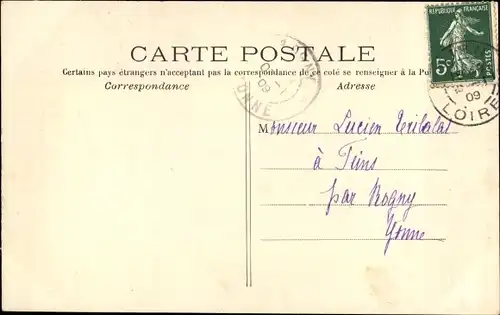 RÉPUBLIQUE FRANÇAISE
5c POSTES
09
LOIRE
CARTE POSTALE
Certains pays étrangers n'acceptant pas la correspondance de ce coté se renseigner à la Po
Correspondance
Adresse
Monsieur Lucien Tribalat
à
par Rogny
Yonne